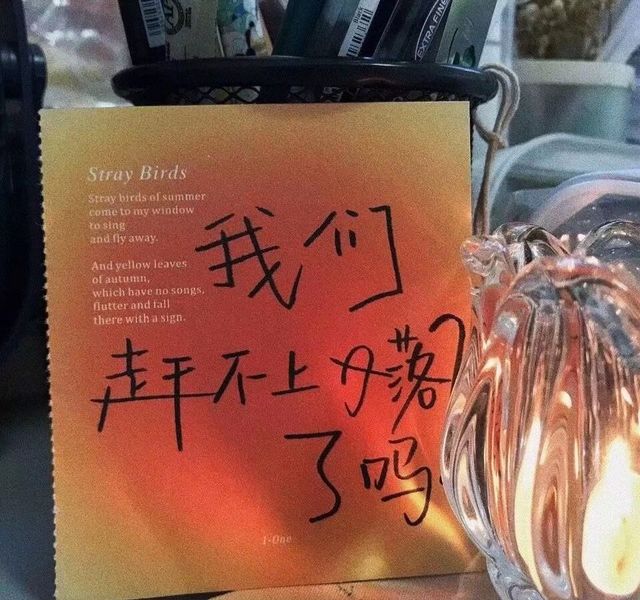 EXTRA FINE
Stray Birds
Stray birds of summer
come to my window
to sing
and fly away.
And yellow leaves
of autumn,
which have no songs,
flutter and fall
there with a sign.
我们
赶不上夕落
了吗
1-One